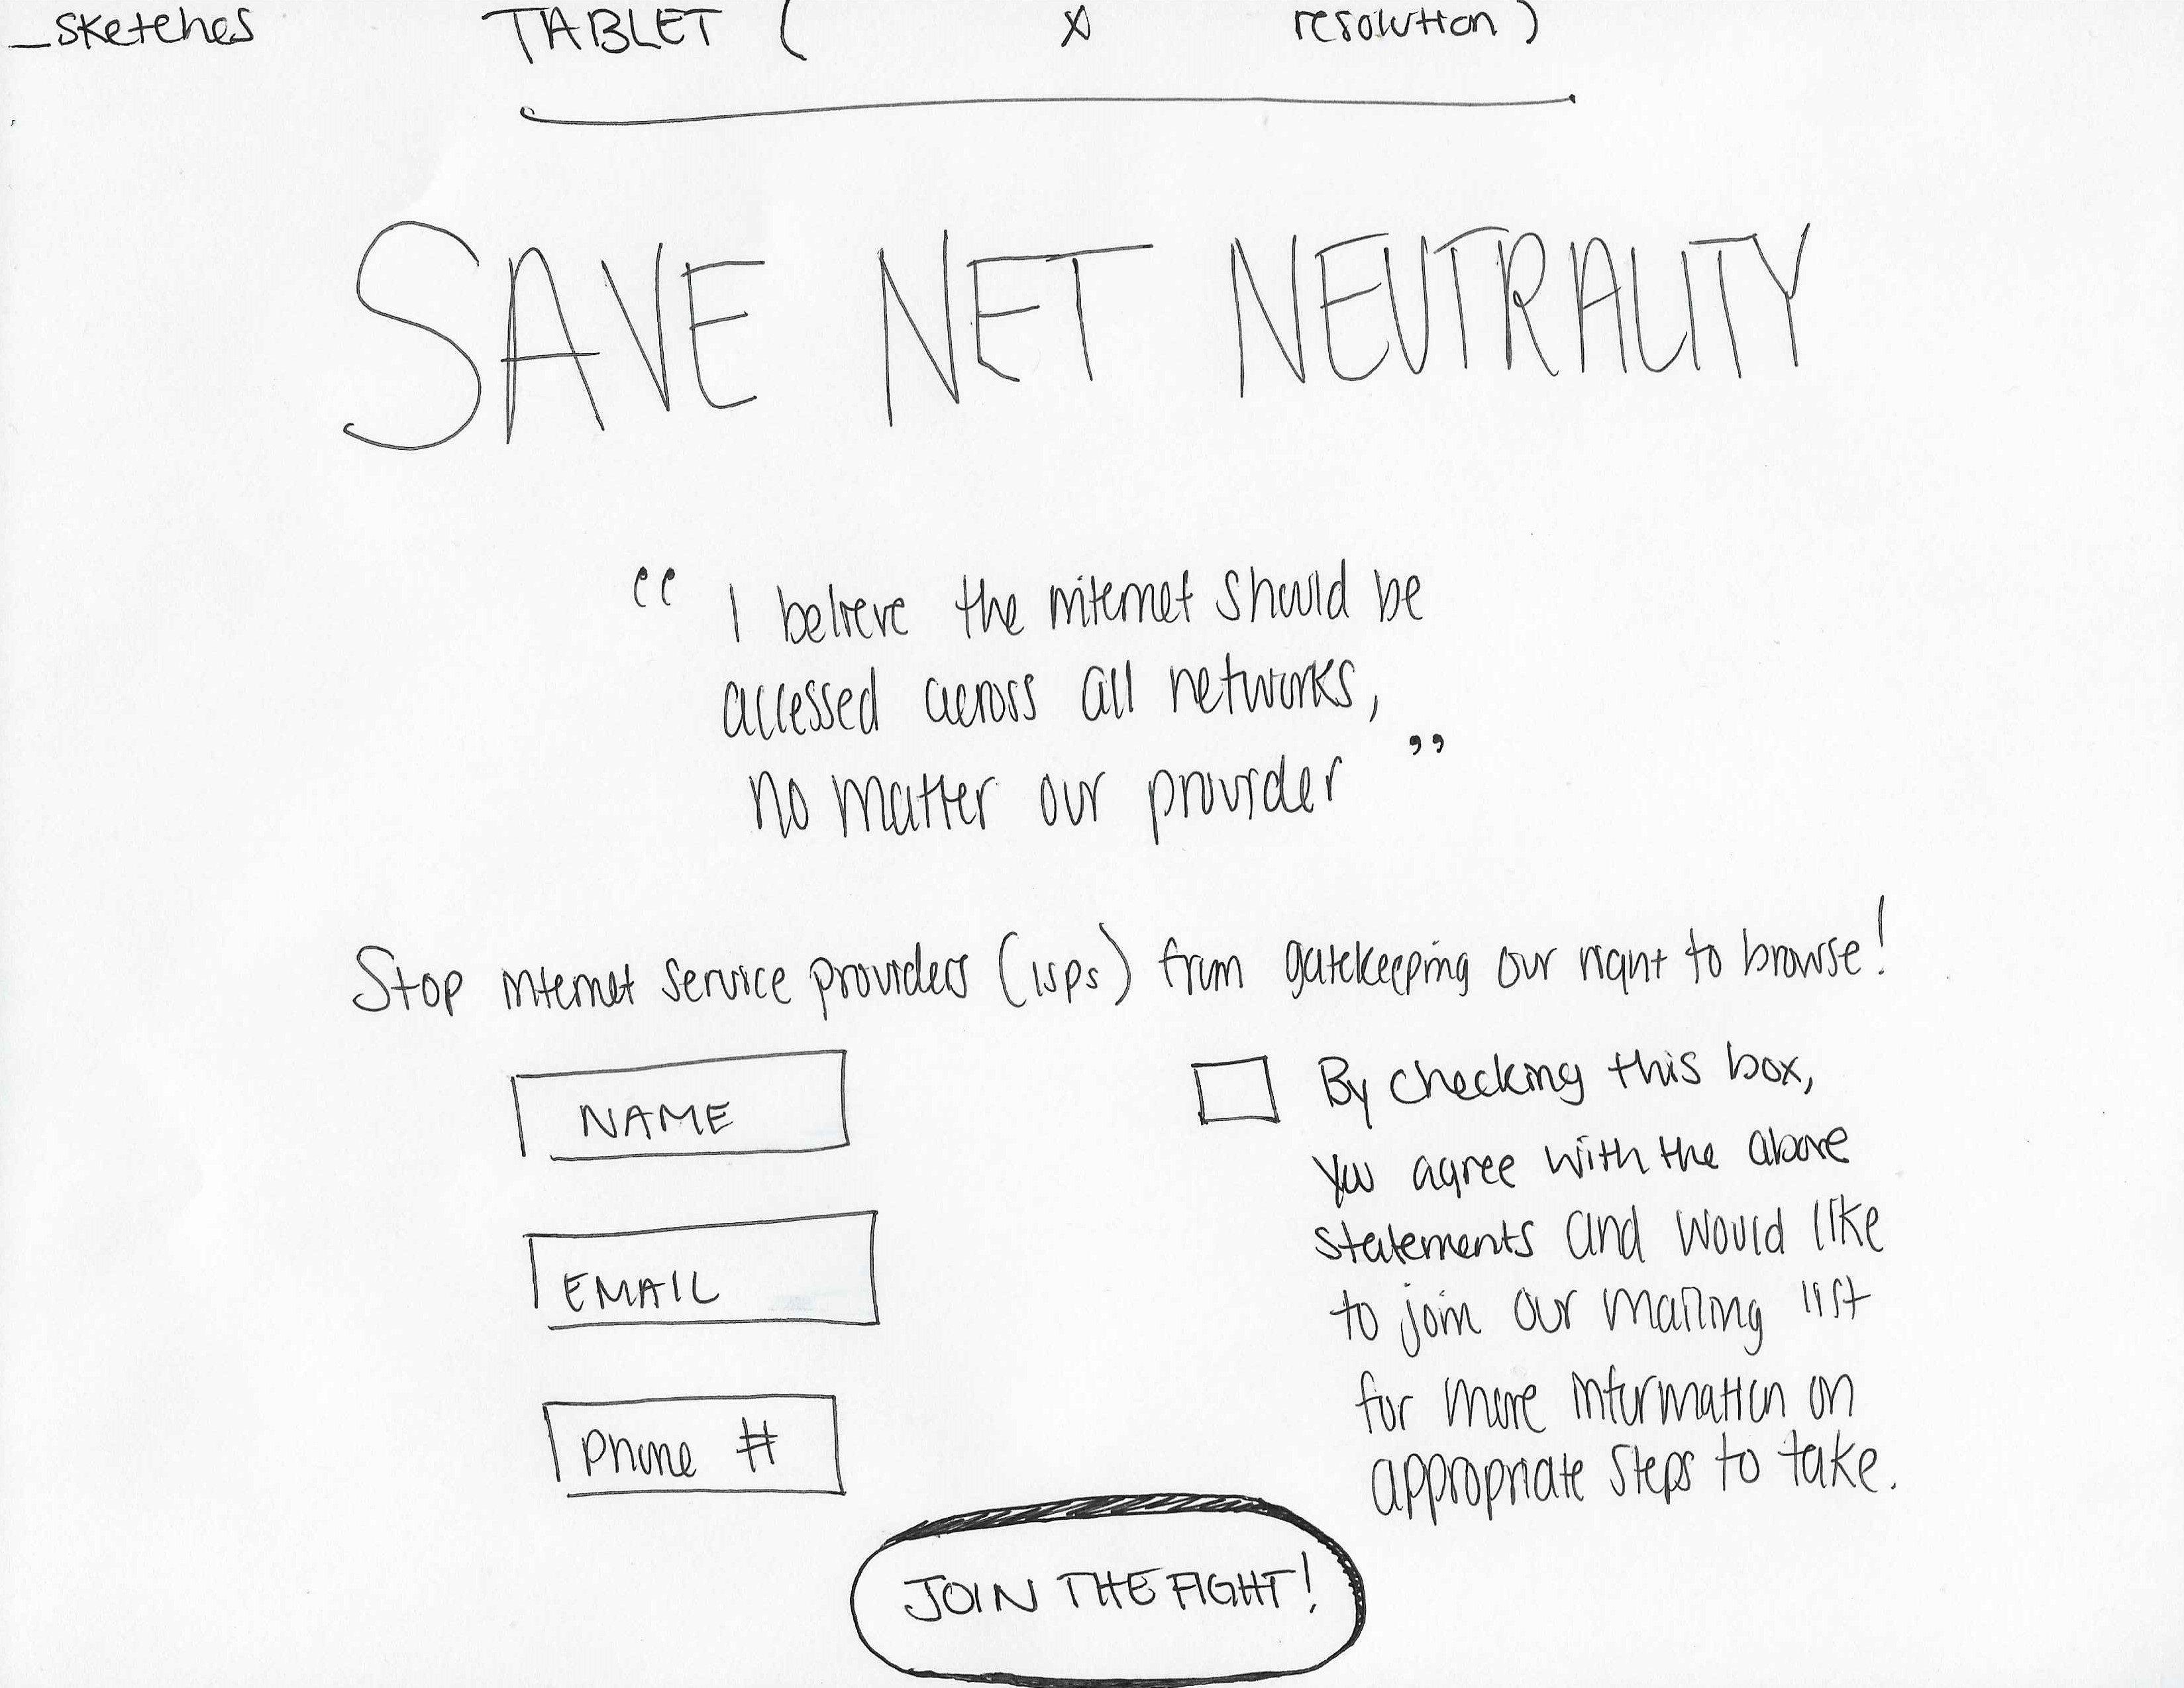 _sketches TABLET ( X resolution )
SAVE NET NEUTRALITY
“ I believe the internet should be
accessed across all networks,
no matter our provider ”
Stop internet service providers (isps) from gatekeeping our right to browse!
NAME
EMAIL
Phone #
By checking this box,
you agree with the above
statements and would like
to join our mailing list
for more information on
appropriate steps to take.
JOIN THE FIGHT!